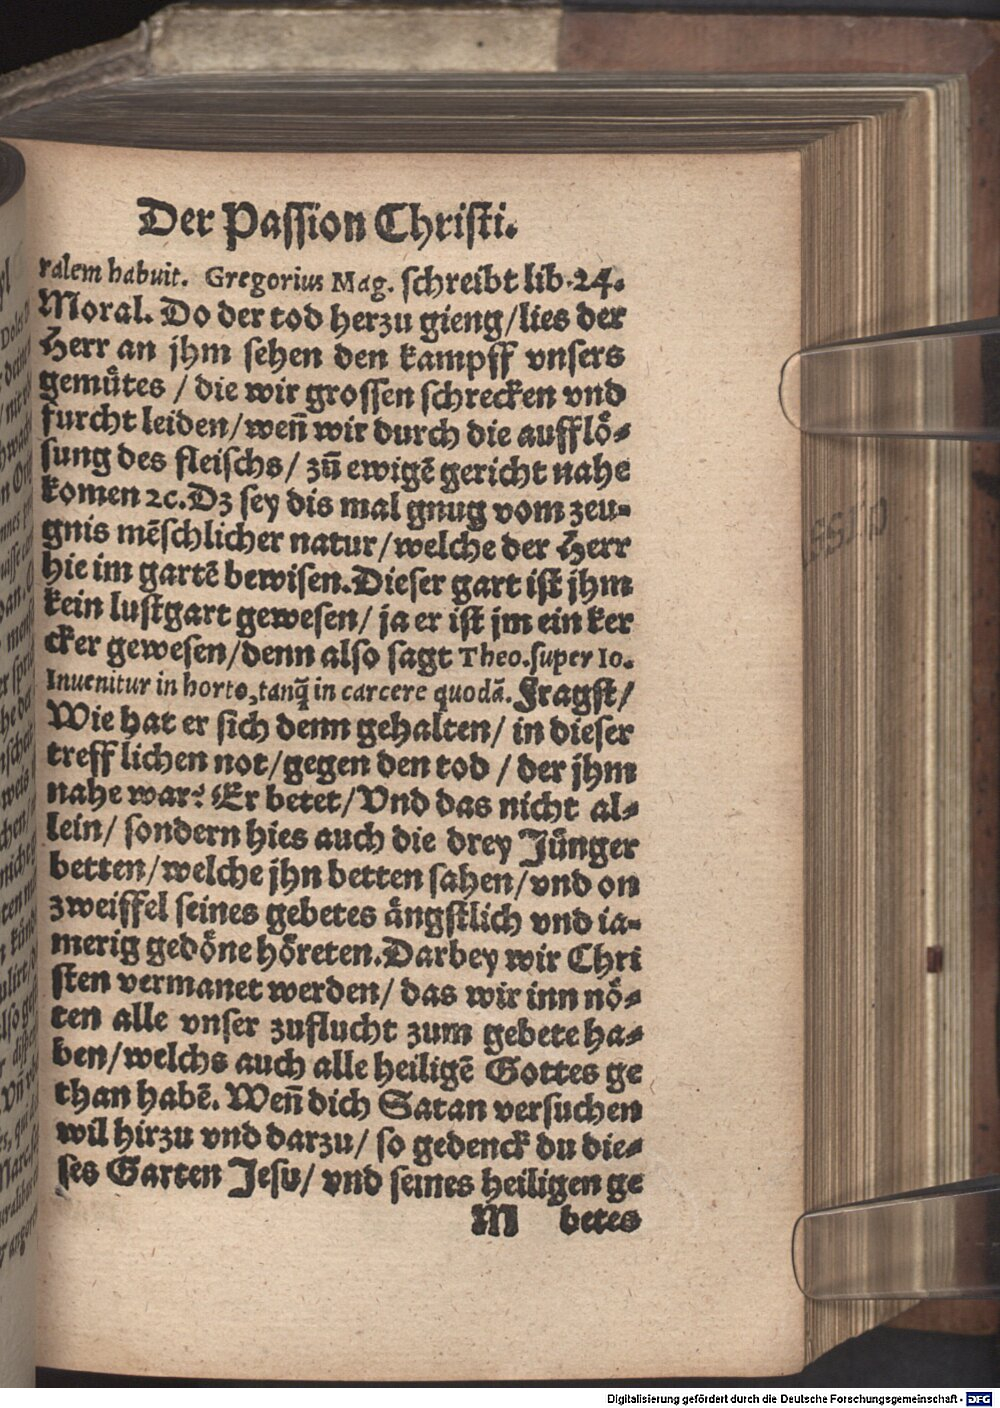 Der Passion Christi.
ralem habuit. Gregorius Mag. schreibt lib.24.
Moral. Do der tod herzu gieng/lies der
Herr an jhm sehen den kampff vnsers
gemuͤtes / die wir grossen schrecken vnd
furcht leiden/weñ wir durch die auffloͤ-
sung des fleischs/ zũ ewigẽ gericht nahe
komen ꝛc. Dz sey dis mal gnug vom zeu-
gnis mẽschlicher natur/welche der Herr
hie im gartẽ bewisen. Dieser gart ist jhm
kein lustgart gewesen/ ja er ist jm ein ker
cker gewesen/denn also sagt Theo. super Io.
Inuenitur in horto, tanq̃ in carcere quodã. Fragst/
Wie hat er sich denn gehalten/ in dieser
treff lichen not/gegen den tod / der jhm
nahe war? Er betet/Vnd das nicht al-
lein/ sondern hies auch die drey Juͤnger
betten/welche jhn betten sahen/vnd on
zweiffel seines gebetes aͤngstlich vnd ia-
merig gedoͤne hoͤreten. Darbey wir Chri
sten vermanet werden/ das wir inn noͤ-
ten alle vnser zuflucht zum gebete ha-
ben/welchs auch alle heiligẽ Gottes ge
than habẽ. Weñ dich Satan versuchen
wil hirzu vnd darzu/ so gedenck du die-
ses Garten Jesu/ vnd seines heiligen ge
M betes
Digitalisierung gefördert durch die Deutsche Forschungsgemeinschaft - DFG